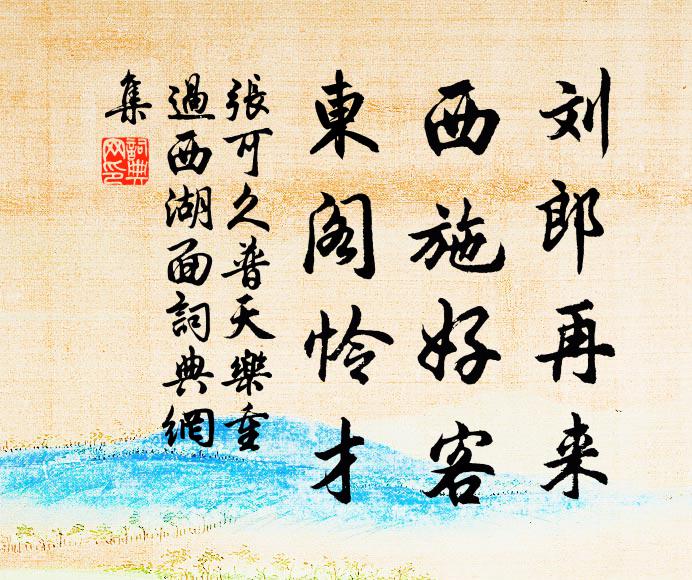 刘郎再来
西施好客
東阁怜才
張可久普天樂重
過西湖面詞典網
集
詞典
网印